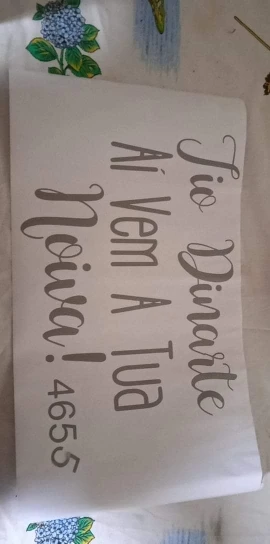 Tio Dinarte
Aí Vem A Tua
Noiva! 4655